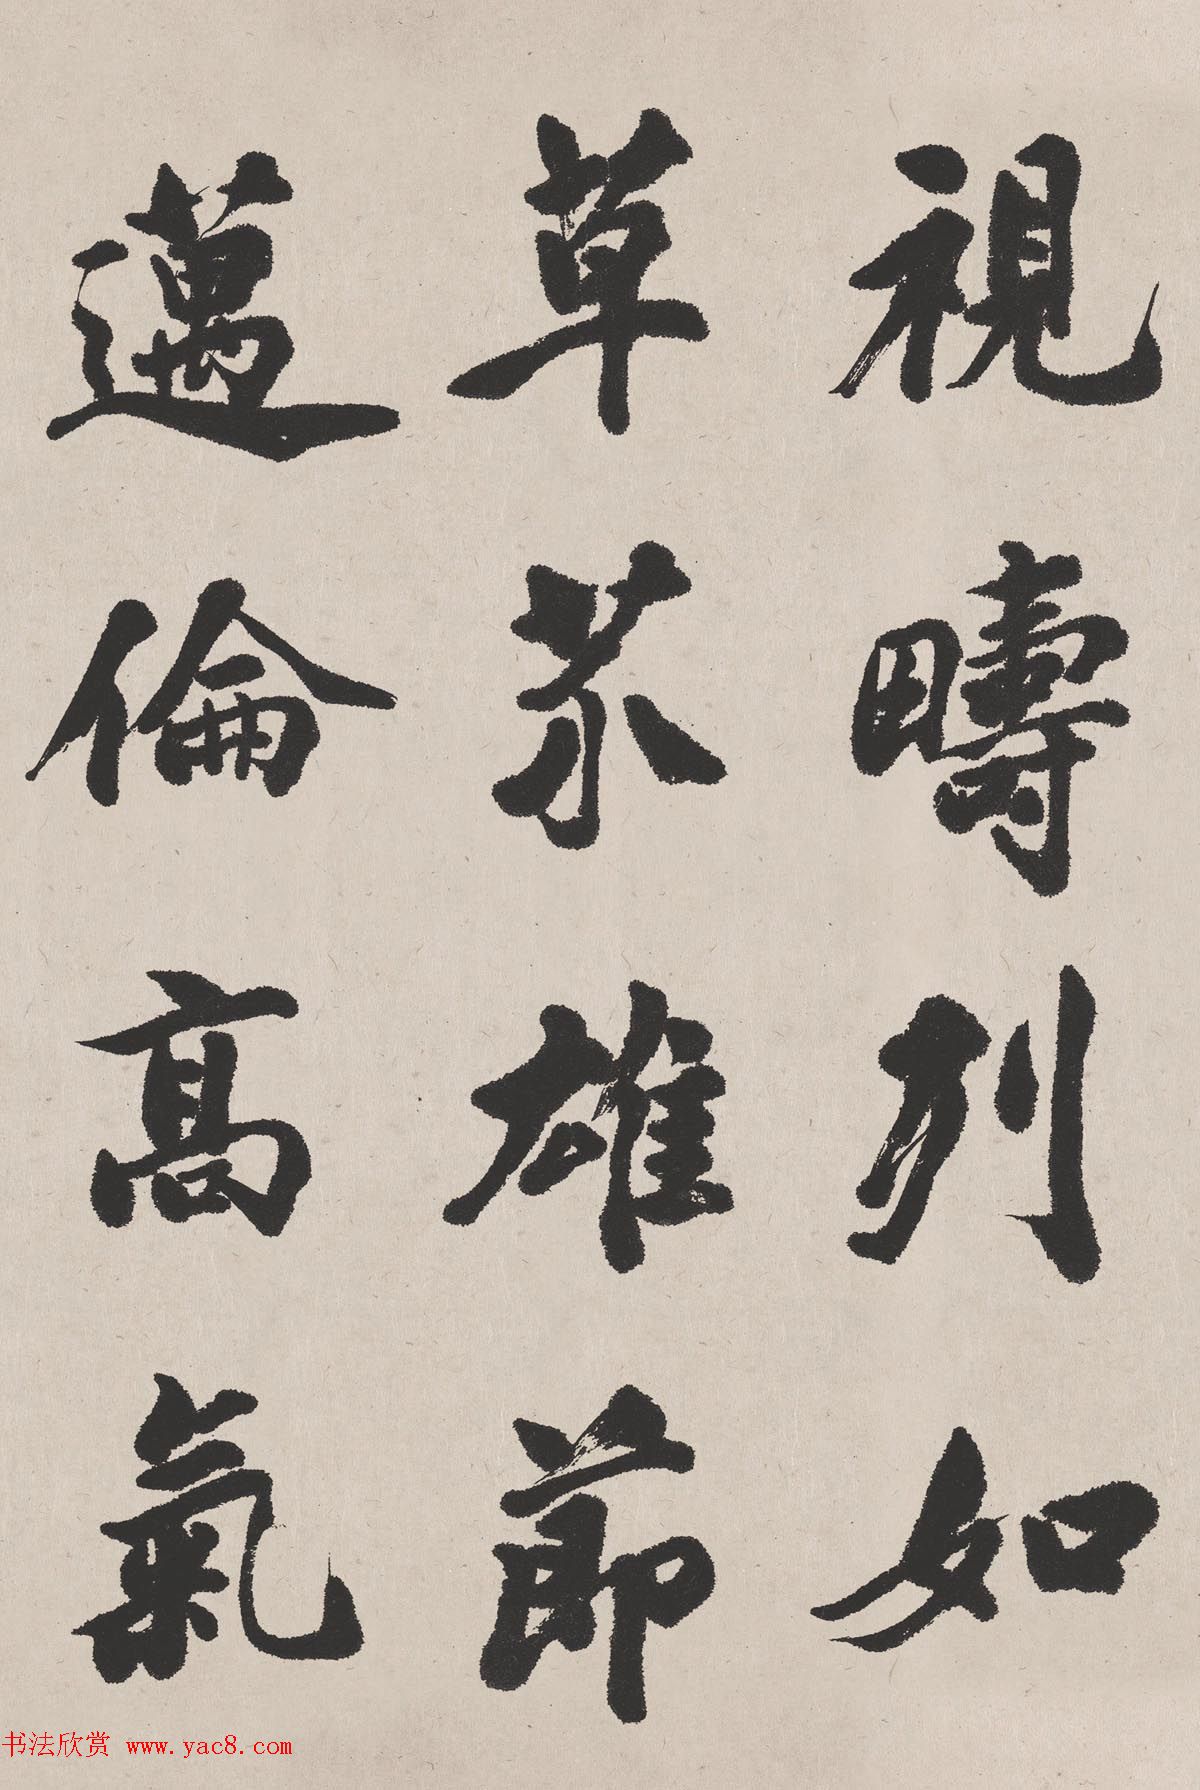 視疇列如
草芥雄節
邁倫高氣
书法欣赏 www.yac8.com